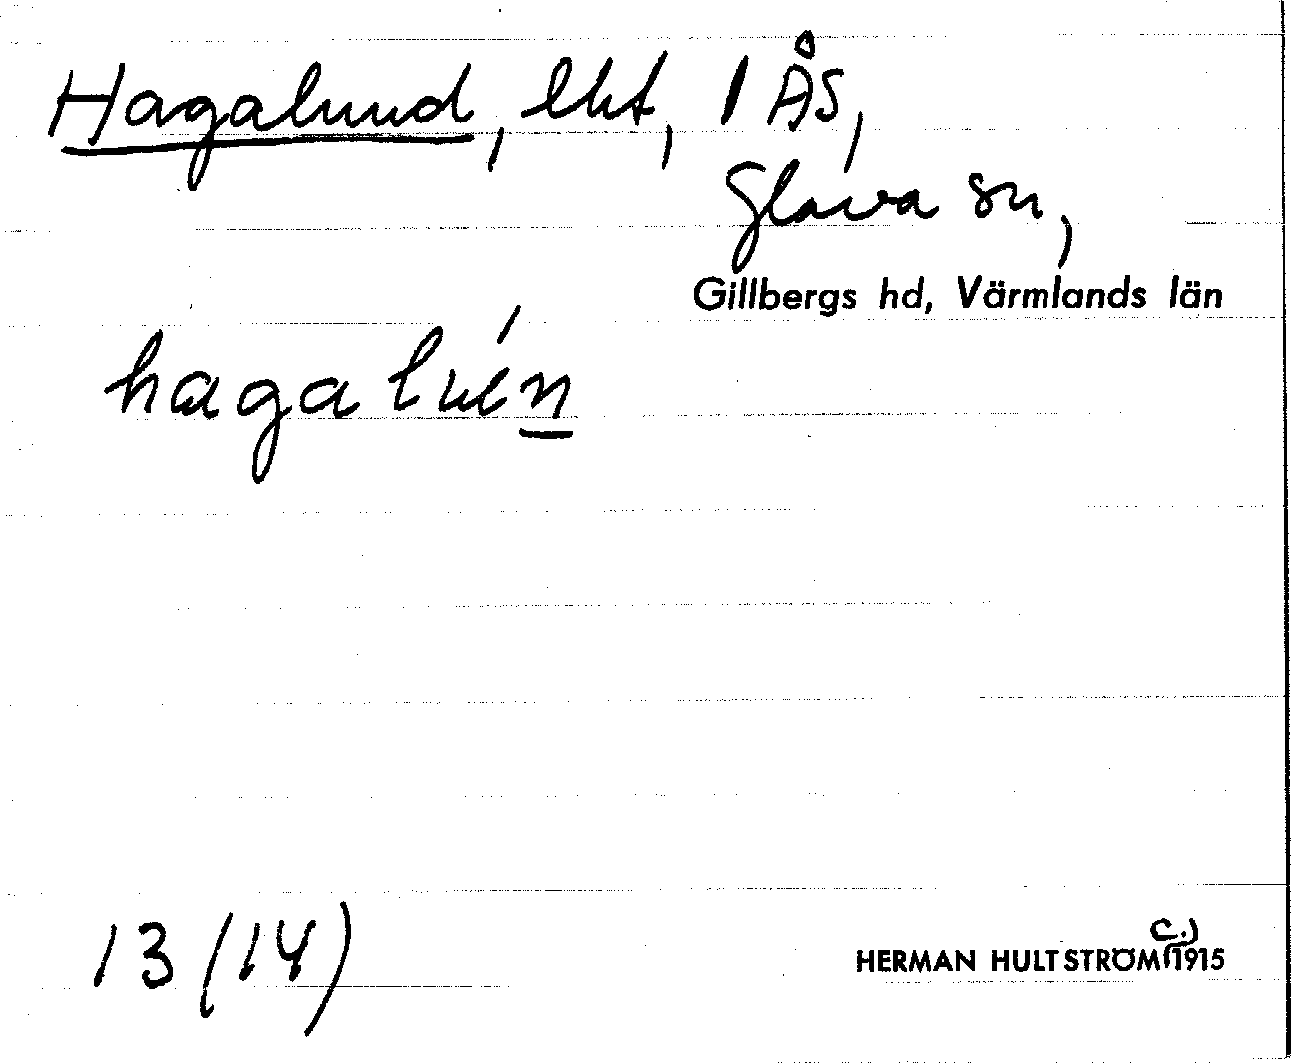 Hagalund, lht, 1 ÅS,
Glava sn,
Gillbergs hd, Värmlands län
13 (14)
HERMAN HULTSTRÖM (c.) 1915